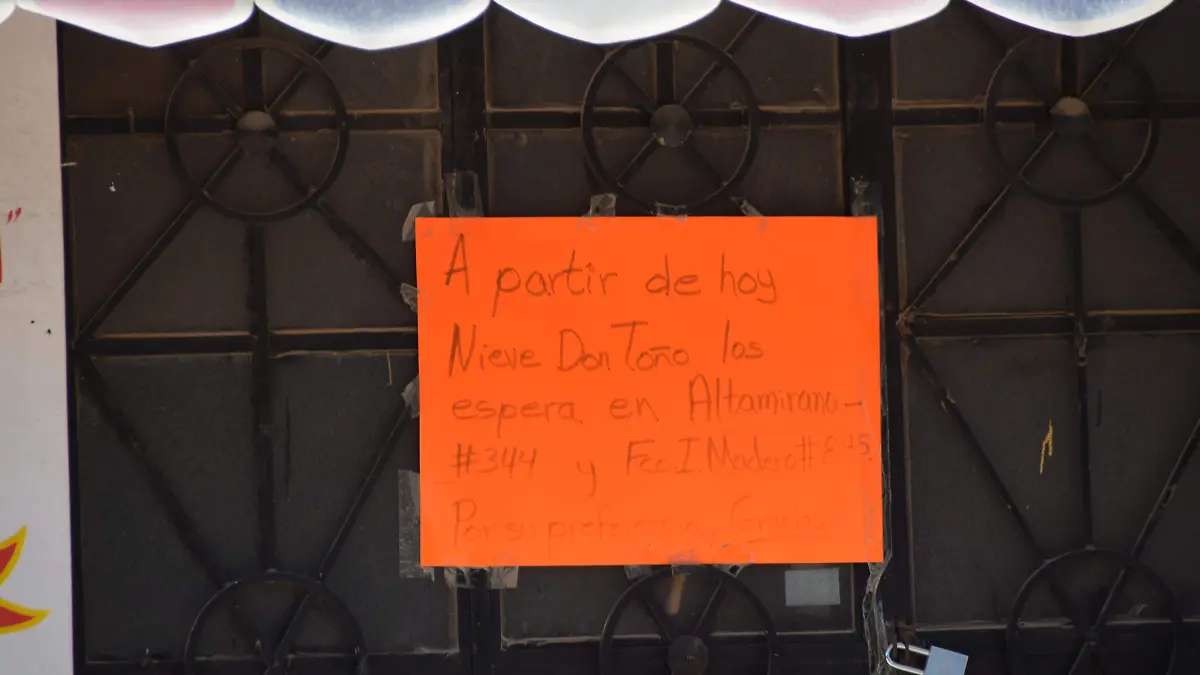 A partir de hoy
Nieve Don Toño los
espera en Altamirano-
#344 y Fco. I. Madero #845.
Por su preferencia, Gracias